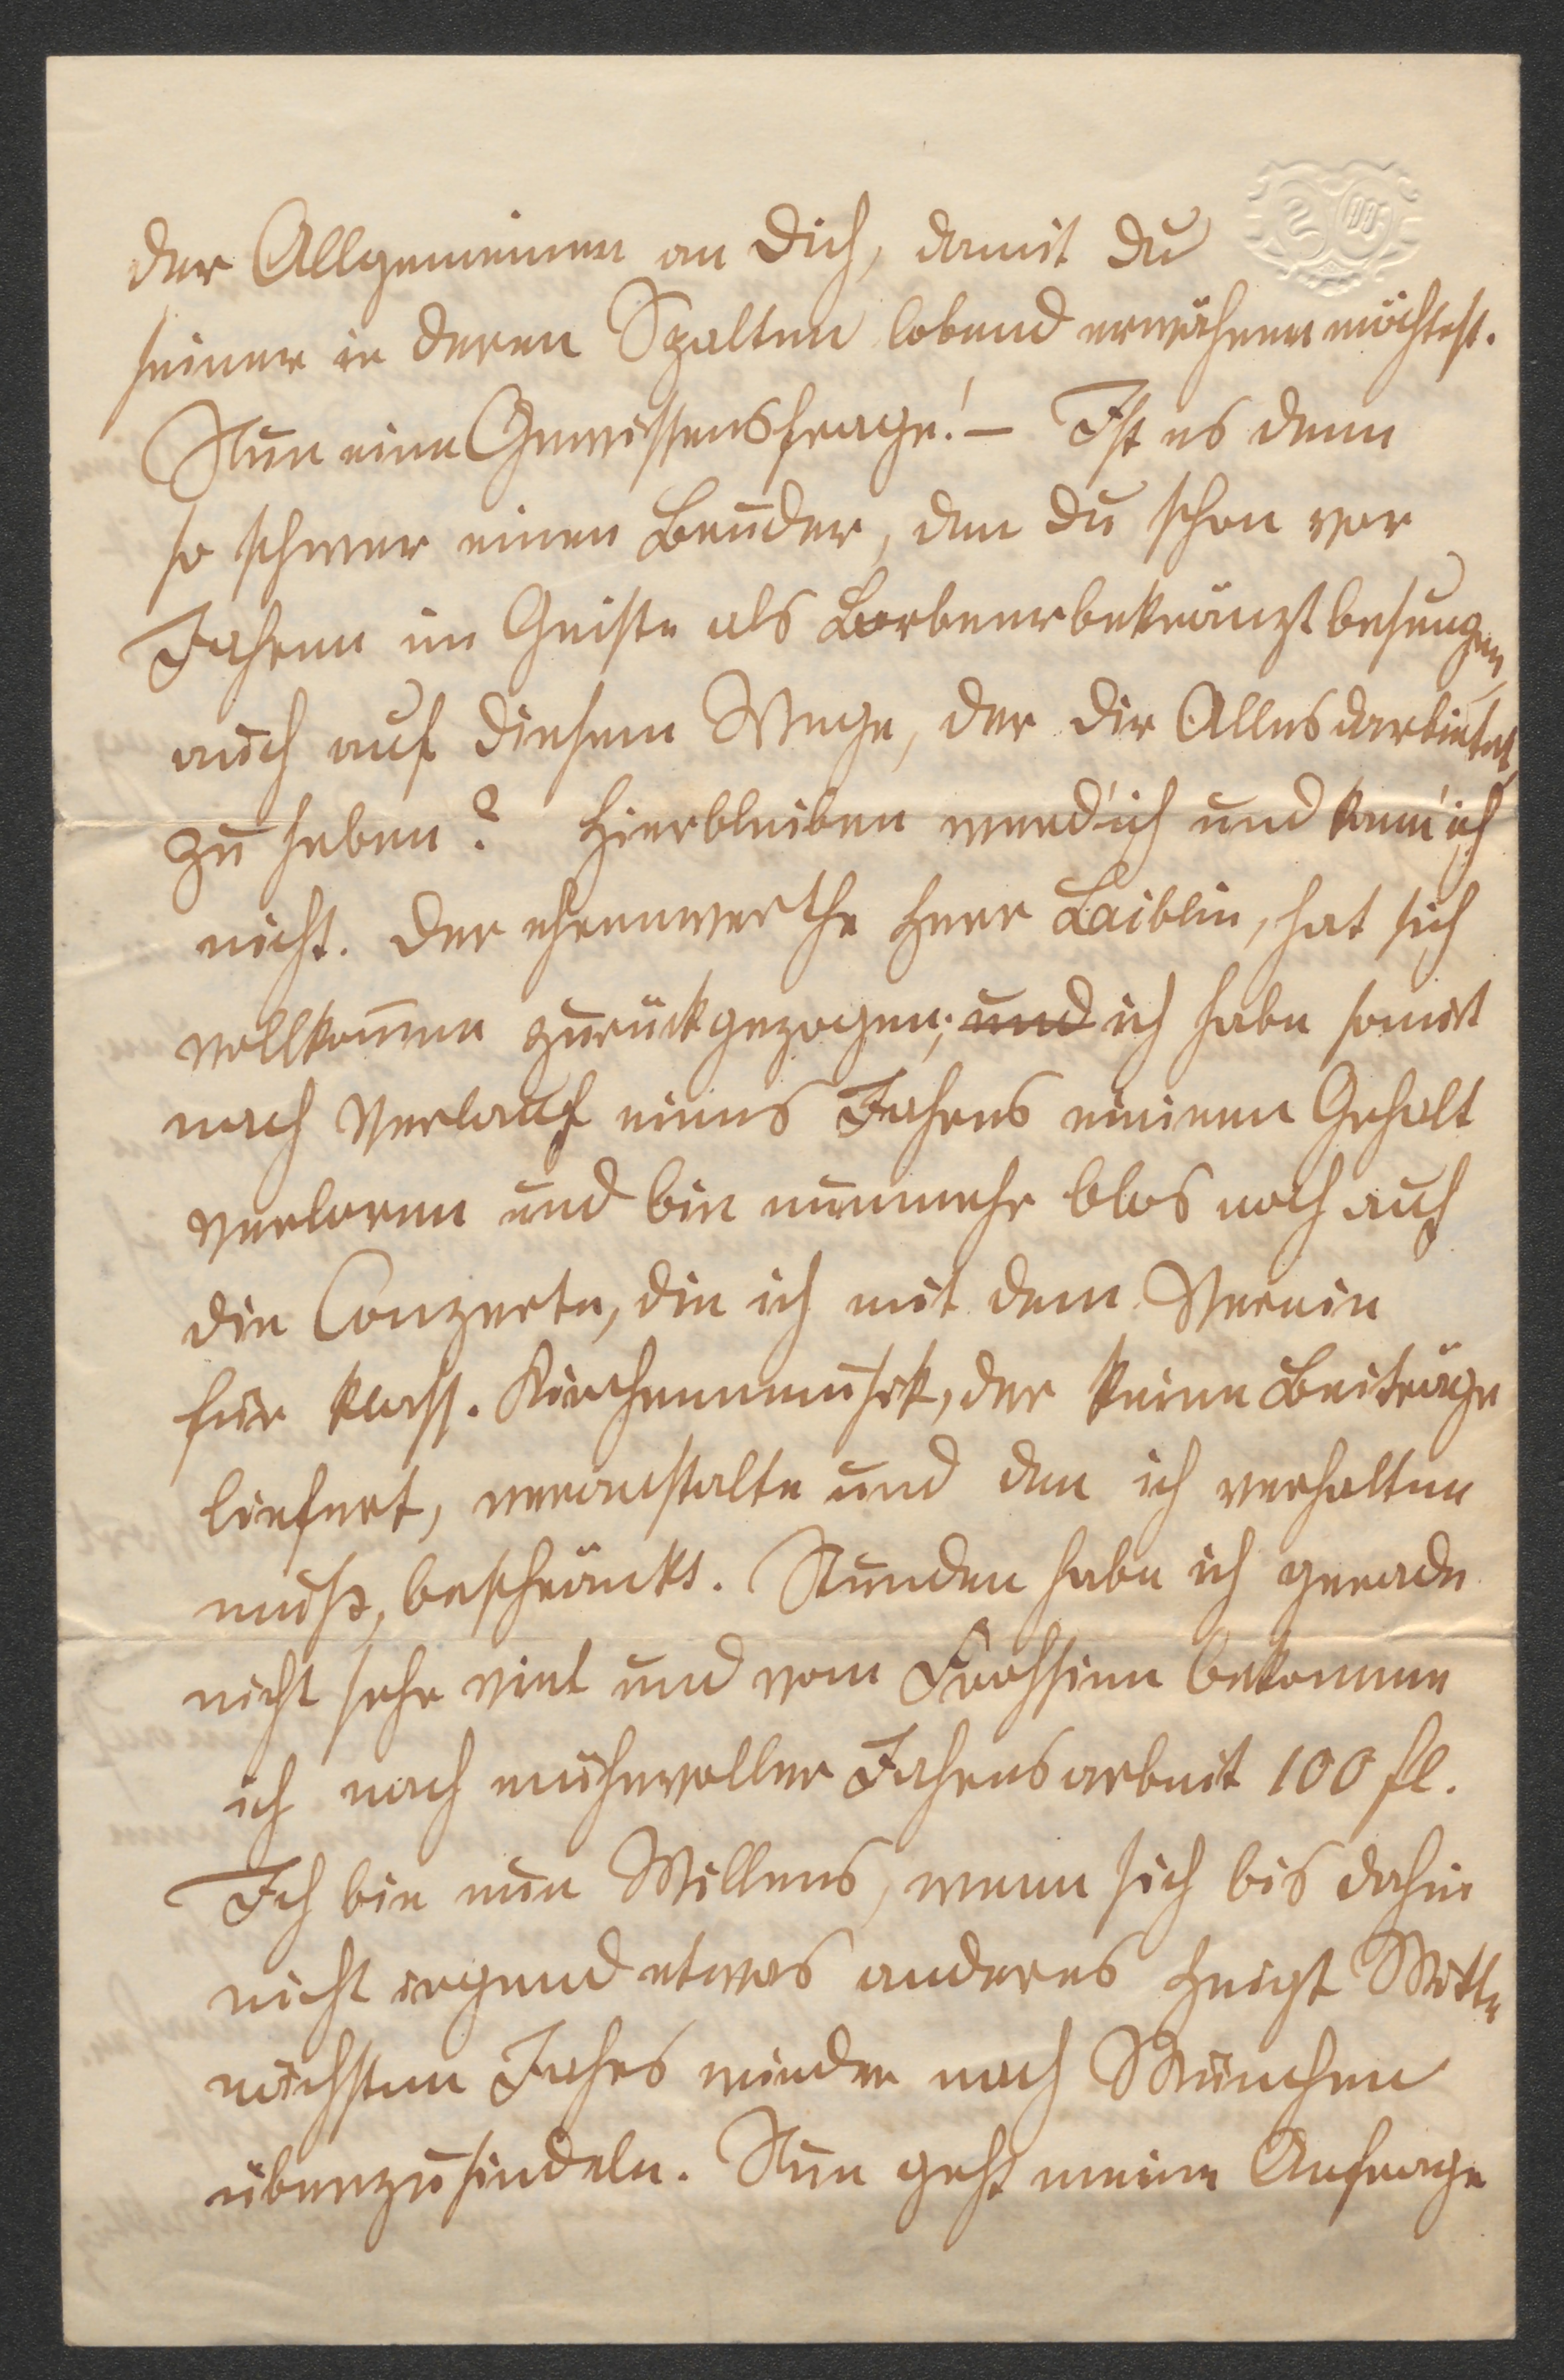 der Allgemeinen an Dich, damit Du
seiner in deren Spalten lobend erwähnen möchtest.
Nun eine Gewissensfrage! – Ist es denn
so schwer einen Bruder, den Du schon vor
Jahren im Geiste als Lorbeerbekränzt besungen,
auch auf diesem Wege, der Dir Alles darbietet,
zu heben? Hierbleiben werd' ich und kann' ich
nicht. Der ehrenwerthe Herr Laiblin, hat sich
vollkommen zurückgezogen; und ich habe somit
nach Verlauf eines Jahres meinen Gehalt
verloren und bin nunmehr blos noch auf
die Conzerte, die ich mit dem Verein
für klass. Kirchenmusik, der keine Beiträge
liefert, veranstalte und den ich erhalten
muß, beschränkt. Stunden habe ich gerade
nicht sehr viel und vom Frohsinn bekomme
ich nach mühevoller Jahresarbeit 100 fl.
Ich bin nun Willens, wenn sich bis dahin
nicht irgend etwas anderes zeigt Mitte
nächsten Jahrs wieder nach München
überzusiedeln. Nun geht meine Anfrage